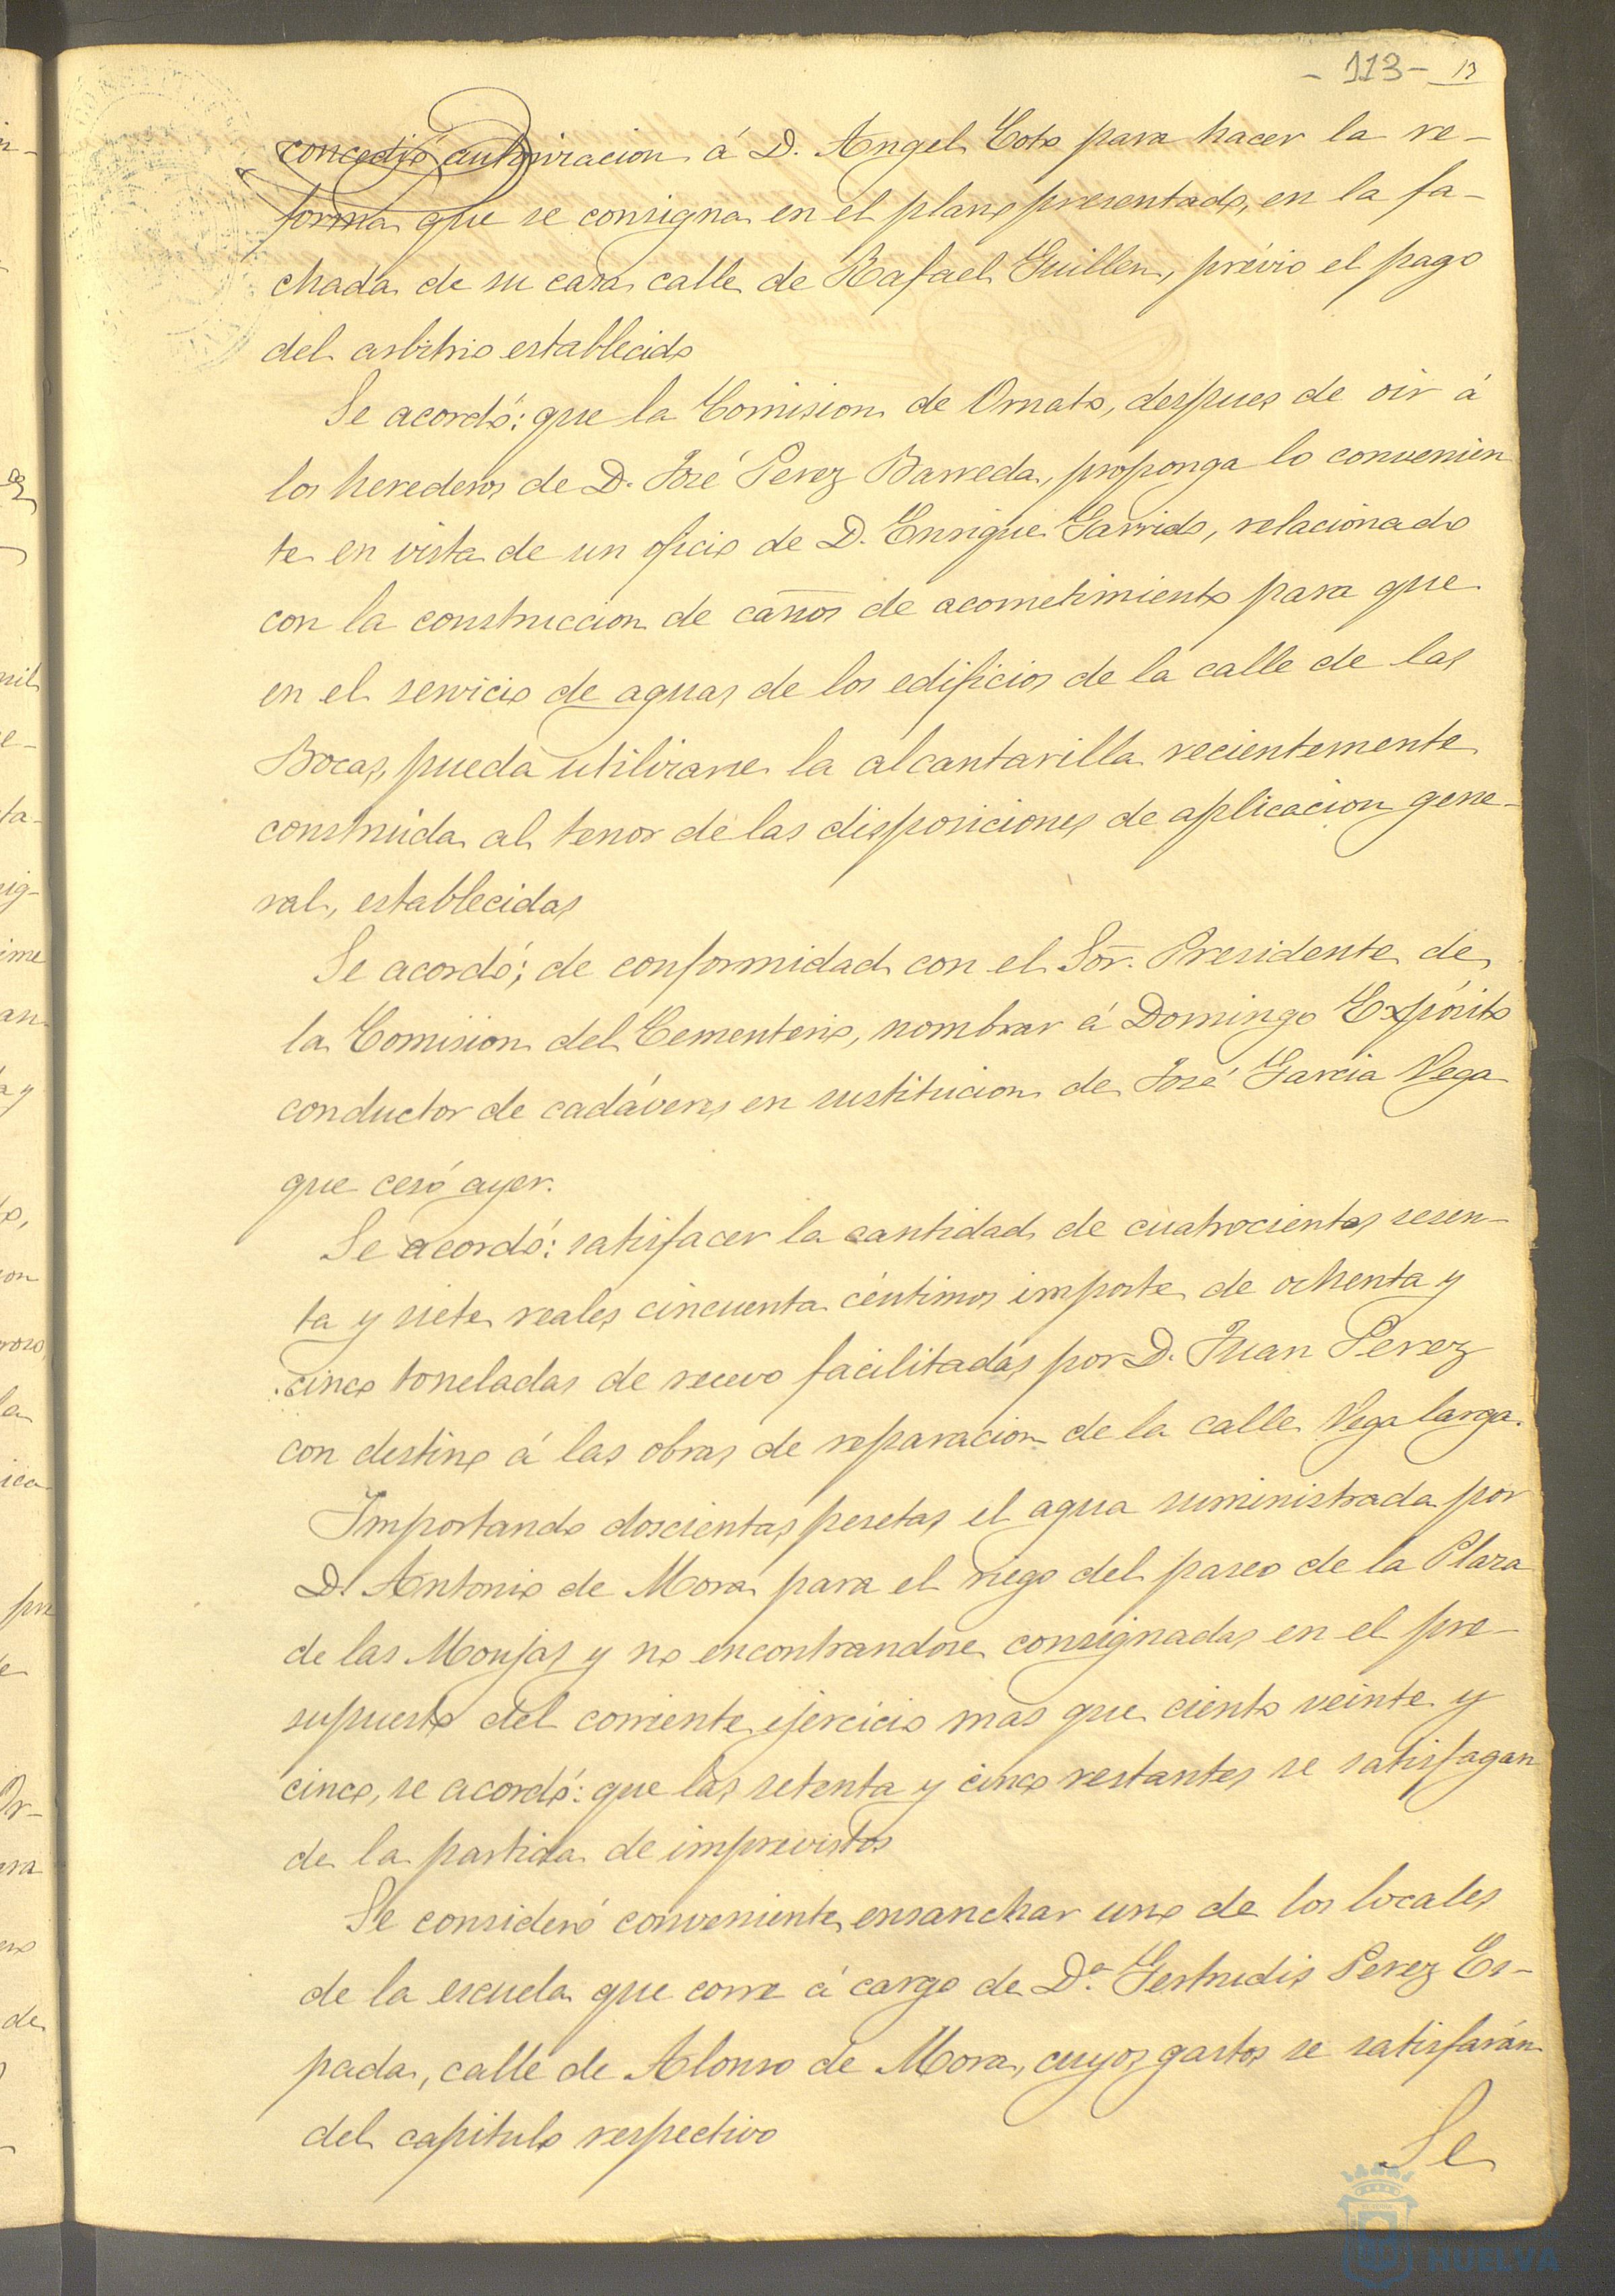 - 113 - 13
concedió autorizacion á D. Angel Coto para hacer la re-
forma que se consigna en el plano presentado, en la fa-
chada de su casa calle de Rafael Guillen, prévio el pago
del arbitrio establecido
Se acordó: que la Comision de Ornato, despues de oir á
los herederos de D. José Perez Barreda, proponga lo convenien
te en vista de un oficio de D. Enrique Garrido, relacionado
con la construccion de caños de acometimiento para que
en el servicio de aguas de los edificios de la calle de las
Bocas, pueda utilizarse la alcantarilla recientemente
construida al tenor de las disposiciones de aplicacion gene-
ral, establecidas
Se acordó; de conformidad con el Sor. Presidente de
la Comision del Cementerio, nombrar á Domingo Expósito
conductor de cadáveres en sustitucion de José Garcia Vega
que cesó ayer.
Se acordó: satisfacer la cantidad de cuatrocientos sesen-
ta y siete reales cincuenta céntimos importe de ochenta y
cinco toneladas de recevo facilitadas por D. Juan Perez
con destino á las obras de reparacion de la calle Vega larga.
Importando doscientas pesetas el agua suministrada por
D. Antonio de Mora para el riego del paseo de la Plaza
de las Monjas y no encontrandose consignadas en el pre-
supuesto del corriente ejercicio mas que ciento veinte y
cinco, se acordó: que las setenta y cinco restantes se satisfagan
de la partida de imprevistos
Se consideró conveniente ensanchar uno de los locales
de la escuela que corre á cargo de Dª Gertrudis Perez Es-
pada, calle de Alonso de Mora, cuyos gastos se satisfarán
del capitulo respectivo
Se
HUELVA